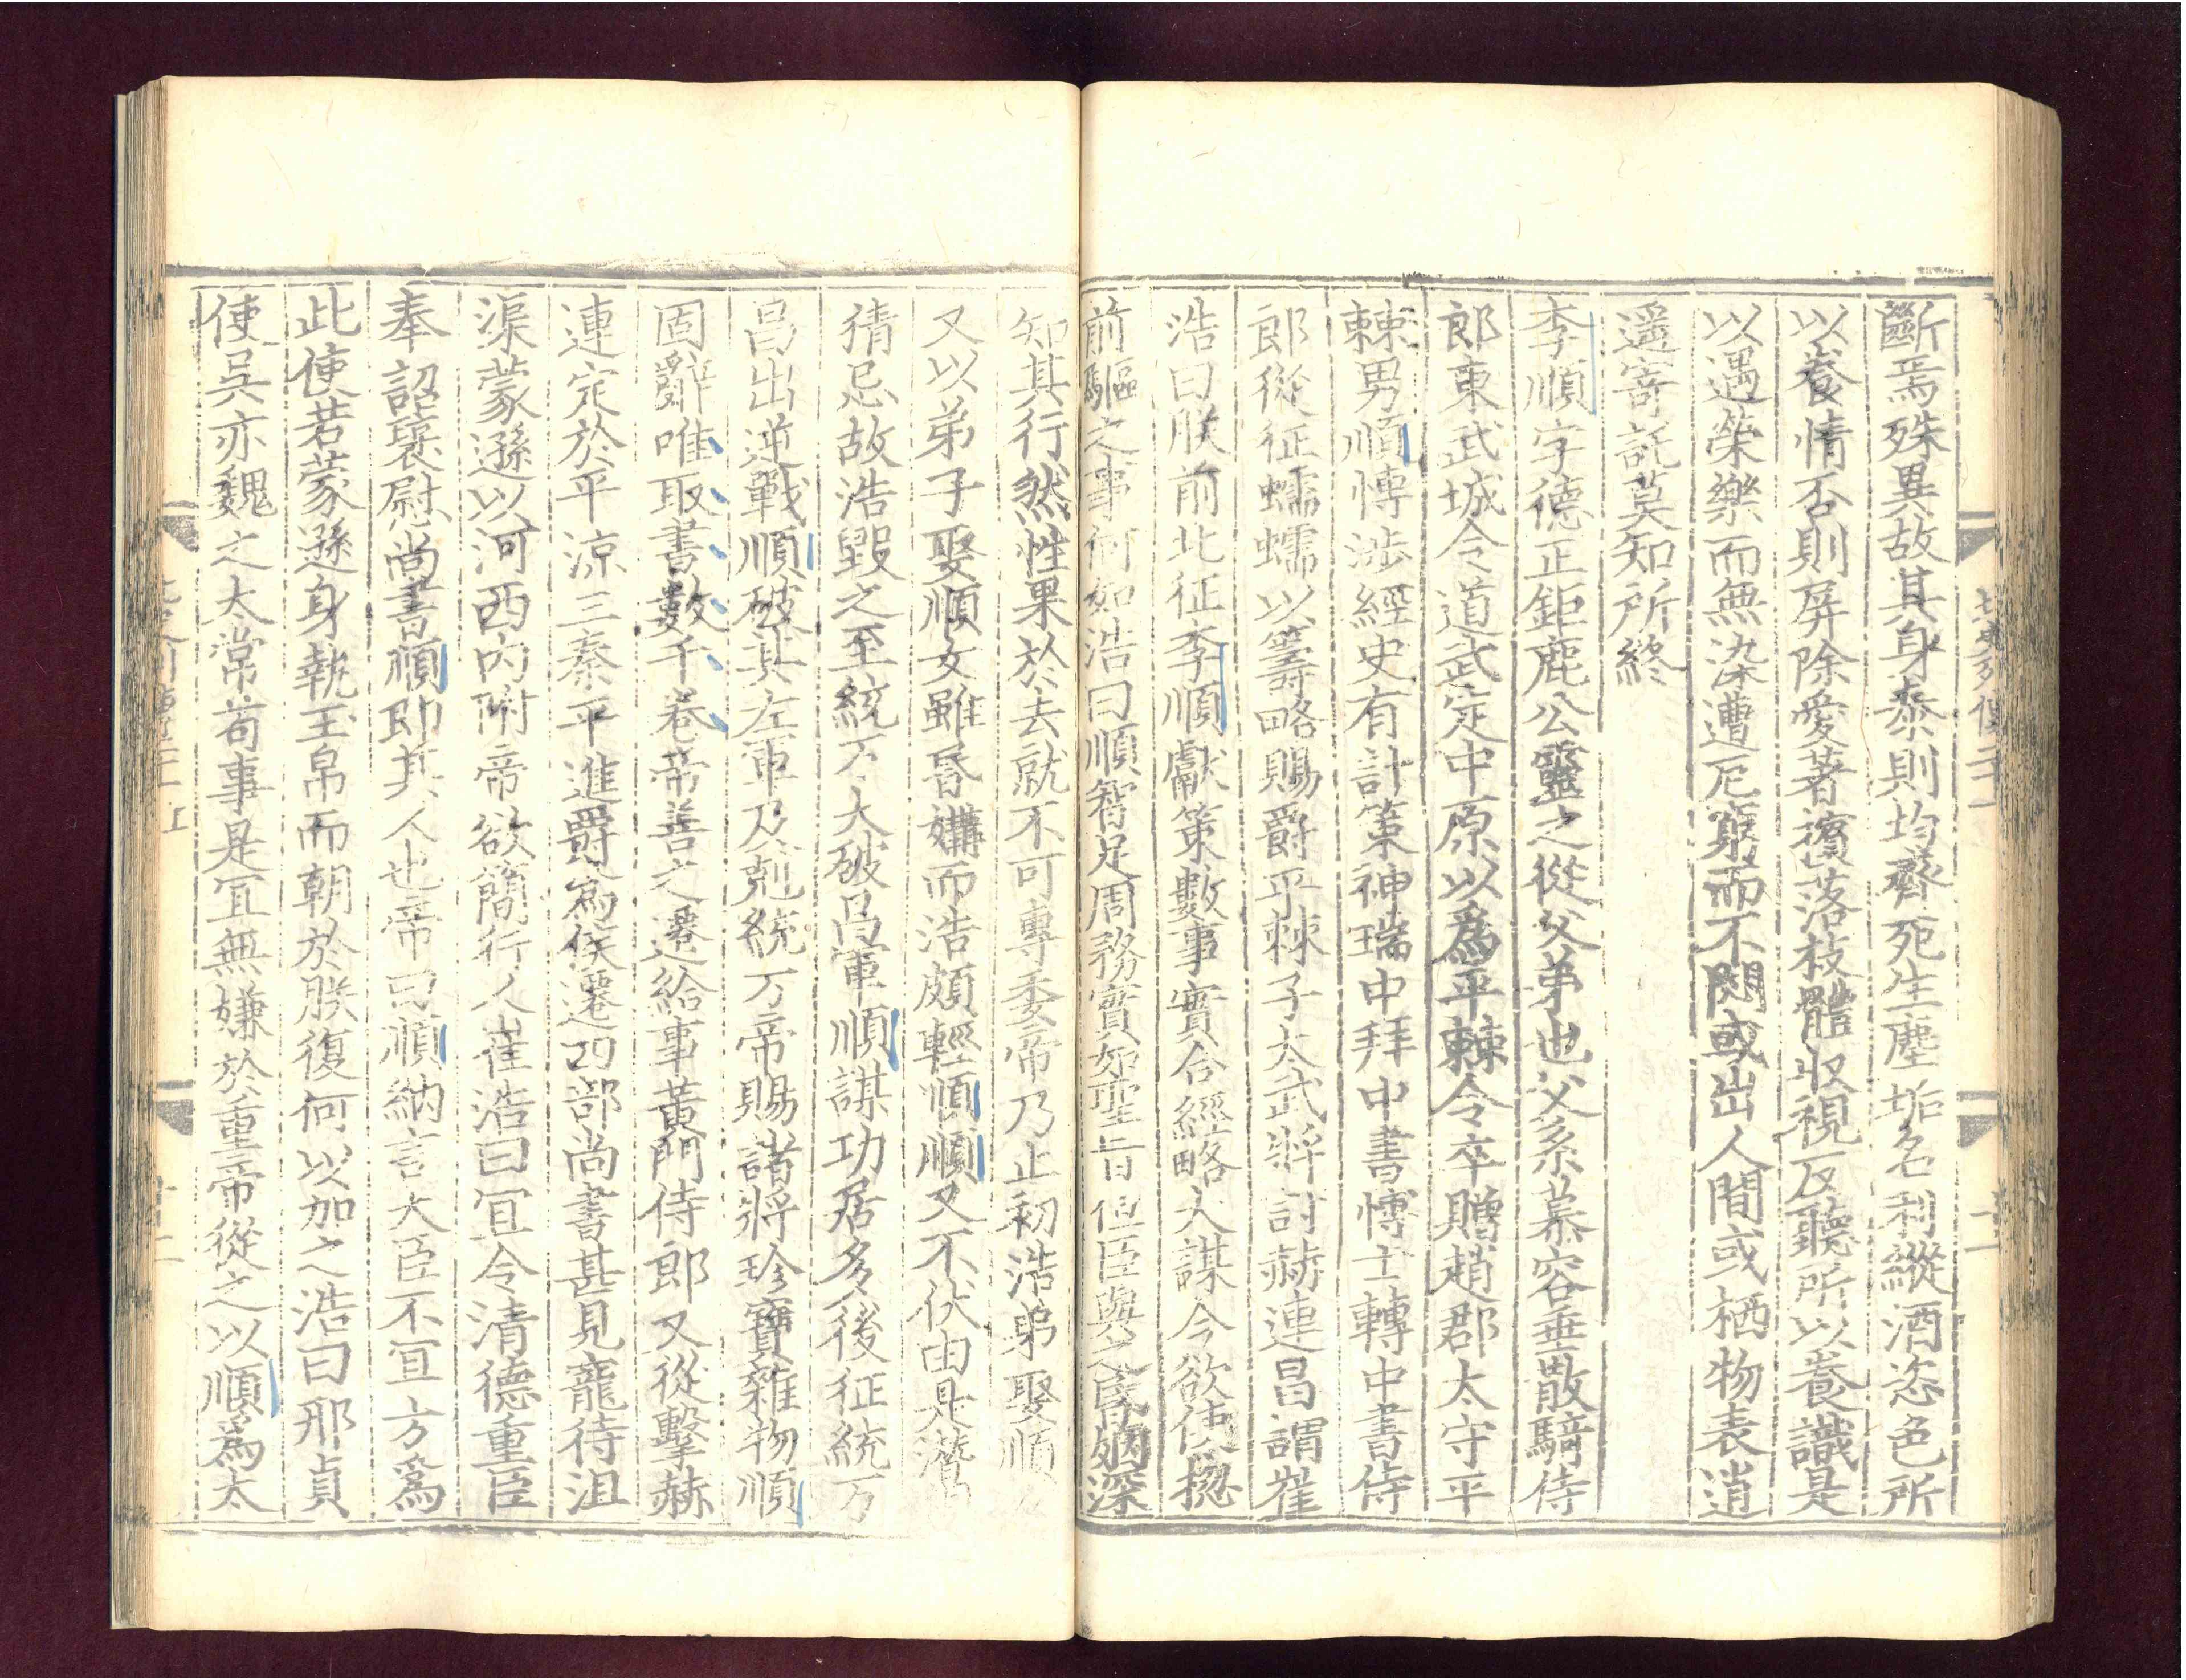 斷焉殊異故其身泰則均齊死生塵垢名利縱酒恣色所
以養情否則屏除愛著擯落枝體收視反聽所以養識是
以遇榮樂而無染遭厄窮而不悶或出人間或栖物表逍
遥寄託莫知所終
李順字德正鉅鹿公靈之從父弟也父系慕容垂散騎侍
郎東武城令道武定中原以爲平棘令卒贈趙郡太守平
棘男順愽涉經史有計策神瑞中拜中書愽士轉中書侍
郎從征蠕蠕以籌略賜爵平棘子太武將討赫連昌謂崔
浩曰朕前北征李順獻策數事實合經略大謀今欲使揔
前驅之事何如浩曰順智足周務實如聖旨但臣與之昏姻深
知其行然性果於去就不可專委帝乃止初浩弟娶順女
又以弟子娶順女雖昏媾而浩頗輕順順又不伏由是潛
猜忌故浩毀之至統万大破昌軍順謀功居多後征統万
昌出逆戰順破其左軍及剋統万帝賜諸將珍寶雜物順
固辭唯取書數千卷帝善之遷給事黃門侍郎又從擊赫
連定於平涼三秦平進爵爲侯遷四部尚書甚見寵待沮
渠蒙遜以河西内附帝欲簡行人崔浩曰宜令清德重臣
奉詔襃慰尚書順即其人也帝曰順納言大臣不宜方爲
此使若蒙遜身執玉帛而朝於朕復何以加之浩曰邢貞
使吳亦魏之太常苟事是宜無嫌於重帝從之以順爲太